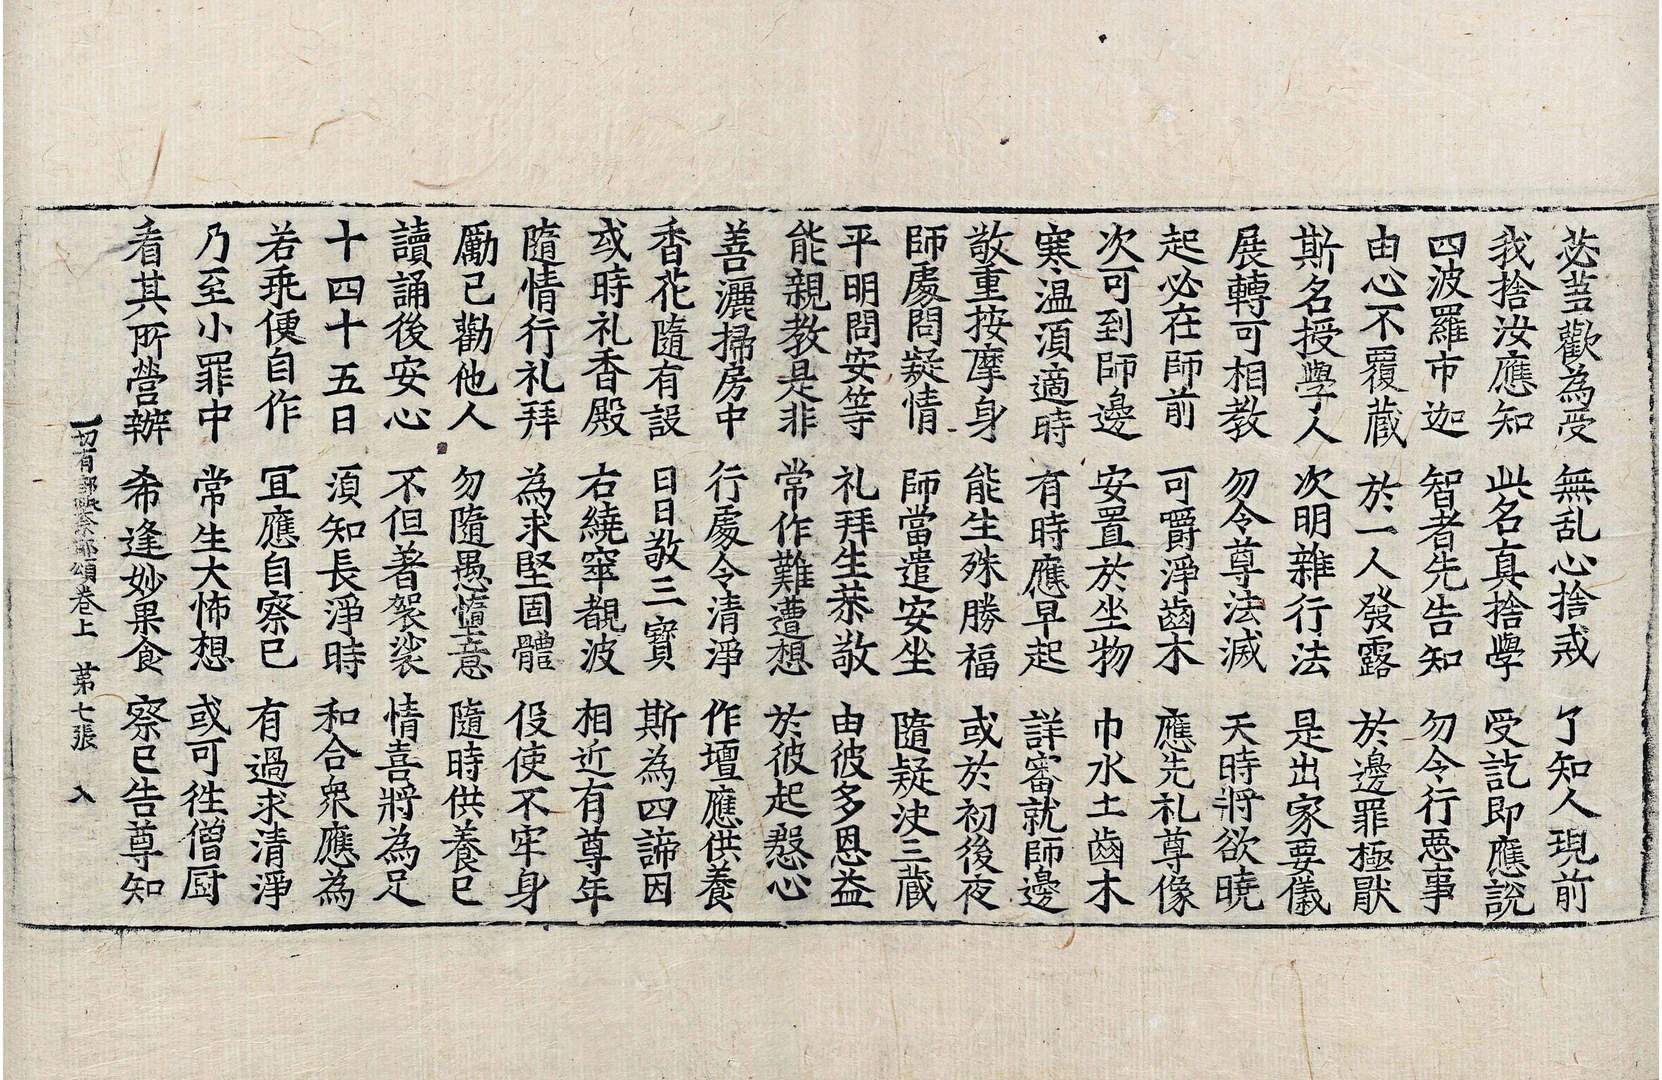 苾蒭歡為受 無乱心捨戒 了知人現前
我捨汝應知 此名真捨學 受訖即應說
四波羅市迦 智者先告知 勿令行惡事
由心不覆藏 於一人發露 於邊罪極猒
斯名授學人 次明雜行法 是出家要儀
展轉可相教 勿令尊法滅 天時將欲曉
起必在師前 可嚼淨齒木 應先礼尊像
次可到師邊 安置於坐物 巾水土齒木
寒温湏適時 有時應早起 詳審就師邊
敬重按摩身 能生殊勝福 或於初後夜
師處問疑情 師當遣安坐 隨疑決三藏
平明問安等 礼拜生恭敬 由彼多恩益
能親教是非 常作難遭想 於彼起慇心
善灑掃房中 行處令清淨 作壇應供養
香花隨有設 日日敬三寶 斯為四諦因
或時礼香殿 右繞窣覩波 相近有尊年
隨情行礼拜 為求堅固體 伇使不牢身
勵已勸他人 勿隨愚墮意 隨時供養已
讀誦後安心 不但著袈裟 情喜將為足
十四十五日 湏知長淨時 和合衆應為
若乖便自作 冝應自察已 有過求清淨
乃至小罪中 常生大怖想 或可徃僧厨
看其所營辦 希逢妙果食 察已告尊知
一切有部毗奈耶頌卷上 第七張 入